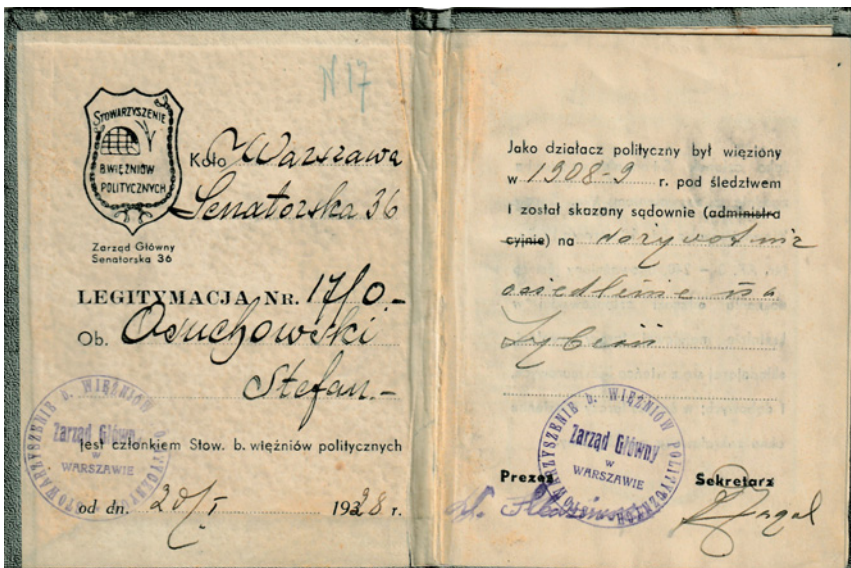 N 17
STOWARZYSZENIE
B.WIĘŹNIÓW
POLITYCZNYCH
Koło Warszawa
Senatorska 36
Zarząd Główny
Senatorska 36
LEGITYMACJA NR. 17/0-
Ob. Osuchowski
Stefan.-
jest członkiem Stow. b. więźniów politycznych
od dn. 20/I 1928 r.
STOWARZYSZENIE b. WIĘŹNIÓW POLITYCZNYCH
Zarząd Główny
w
WARSZAWIE
Jako działacz polityczny był więziony
w 1908-9 r. pod śledztwem
i został skazany sądownie (administra
cyjnie) na dożywotnie
osiedlenie na
Syberii
STOWARZYSZENIE b. WIĘŹNIÓW POLITYCZNYCH
Zarząd Główny
w
WARSZAWIE
Prezes
Sekretarz